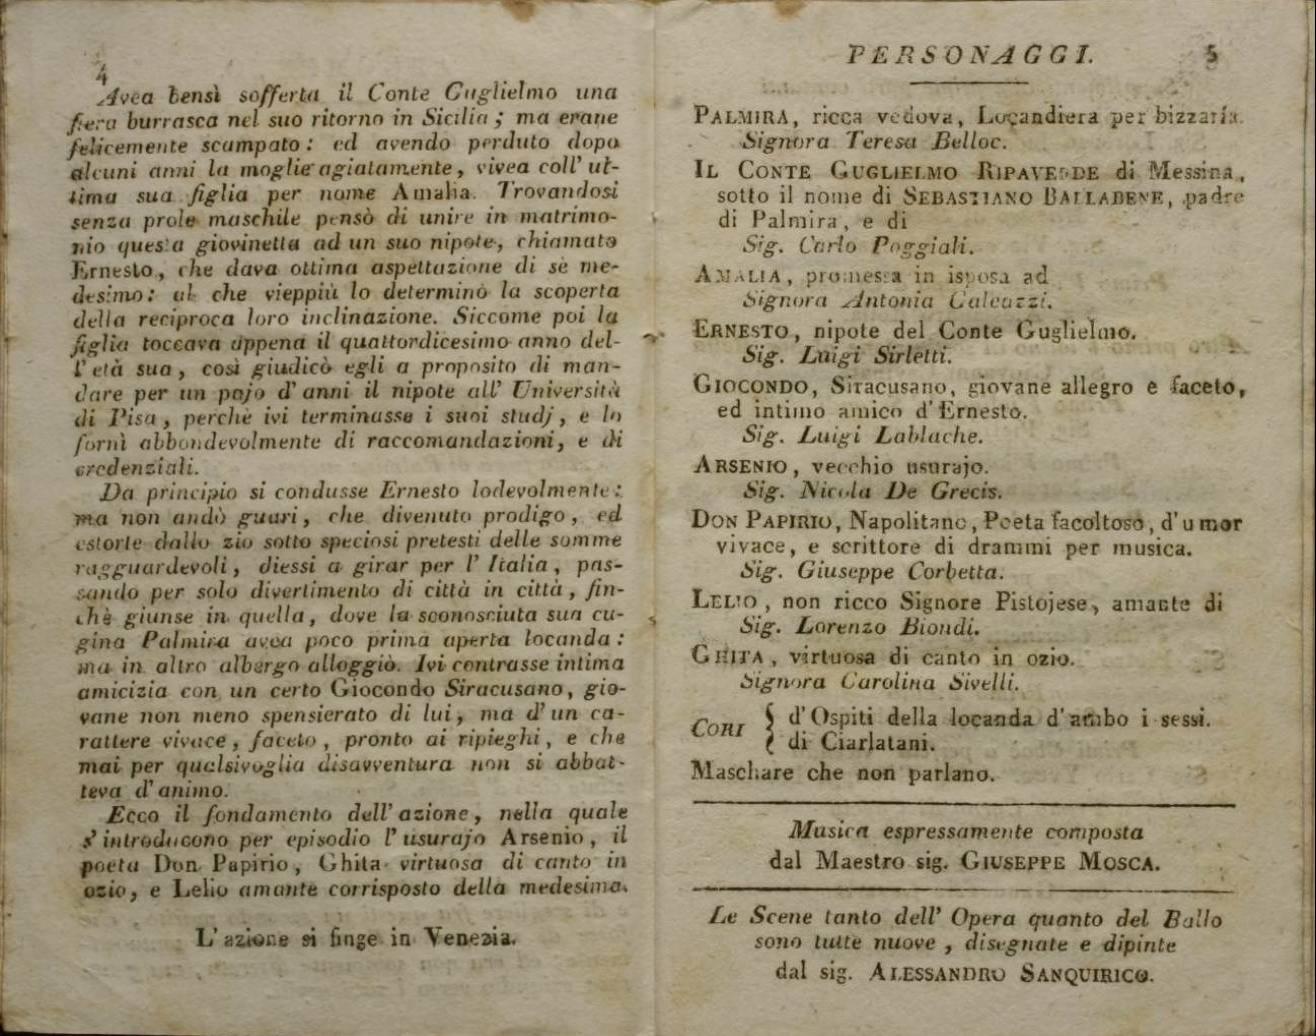 4
Avea bensì sofferta il Conte Guglielmo una
fiera burrasca nel suo ritorno in Sicilia ; ma erane
felicemente scampato : ed avendo perduto dopo
alcuni anni la moglie agiatamente, vivea coll' ul-
tima sua figlia per nome Amalia. Trovandosi
senza prole maschile pensò di unire in matrimo-
nio questa giovinetta ad un suo nipote, chiamato
Ernesto, che dava ottima aspettazione di sè me-
desimo : al che vieppiù lo determinò la scoperta
della reciproca loro inclinazione. Siccome poi la
figlia toccava appena il quattordicesimo anno del-
l' età sua, così giudicò egli a proposito di man-
dare per un pajo d' anni il nipote all' Università
di Pisa, perchè ivi terminasse i suoi studj, e lo
fornì abbondevolmente di raccomandazioni, e di
credenziali.
Da principio si condusse Ernesto lodevolmente :
ma non andò guari, che divenuto prodigo, ed
estorte dallo zio sotto speciosi pretesti delle somme
ragguardevoli, diessi a girar per l' Italia, pas-
sando per solo divertimento di città in città, fin-
chè giunse in quella, dove la sconosciuta sua cu-
gina Palmira avea poco prima aperta locanda :
ma in altro albergo alloggiò. Ivi contrasse intima
amicizia con un certo Giocondo Siracusano, gio-
vane non meno spensierato di lui, ma d' un ca-
rattere vivace, faceto, pronto ai ripieghi, e che
mai per qualsivoglia disavventura non si abbat-
teva d' animo.
Ecco il fondamento dell' azione, nella quale
s' introducono per episodio l' usurajo Arsenio, il
poeta Don Papirio, Ghita virtuosa di canto in
ozio, e Lelio amante corrisposto della medesima.
L' azione si finge in Venezia.
PERSONAGGI. 5
PALMIRA, ricca vedova, Locandiera per bizzaria.
Signora Teresa Belloc.
IL CONTE GUGLIELMO RIPAVERDE di Messina,
sotto il nome di SEBASTIANO BALLABENE, padre
di Palmira, e di
Sig. Carlo Poggiali.
AMALIA, promessa in isposa ad
Signora Antonia Galeazzi.
ERNESTO, nipote del Conte Guglielmo.
Sig. Luigi Sirletti.
GIOCONDO, Siracusano, giovane allegro e faceto,
ed intimo amico d' Ernesto.
Sig. Luigi Lablache.
ARSENIO, vecchio usurajo.
Sig. Nicola De Grecis.
DON PAPIRIO, Napolitano, Poeta facoltoso, d' umor
vivace, e scrittore di drammi per musica.
Sig. Giuseppe Corbetta.
LELIO, non ricco Signore Pistojese, amante di
Sig. Lorenzo Biondi.
GHITA, virtuosa di canto in ozio.
Signora Carolina Sivelli.
CORI { d' Ospiti della locanda d' ambo i sessi.
di Ciarlatani.
Maschare che non parlano.
Musica espressamente composta
dal Maestro sig. GIUSEPPE MOSCA.
Le Scene tanto dell' Opera quanto del Ballo
sono tutte nuove, disegnate e dipinte
dal sig. ALESSANDRO SANQUIRICO.